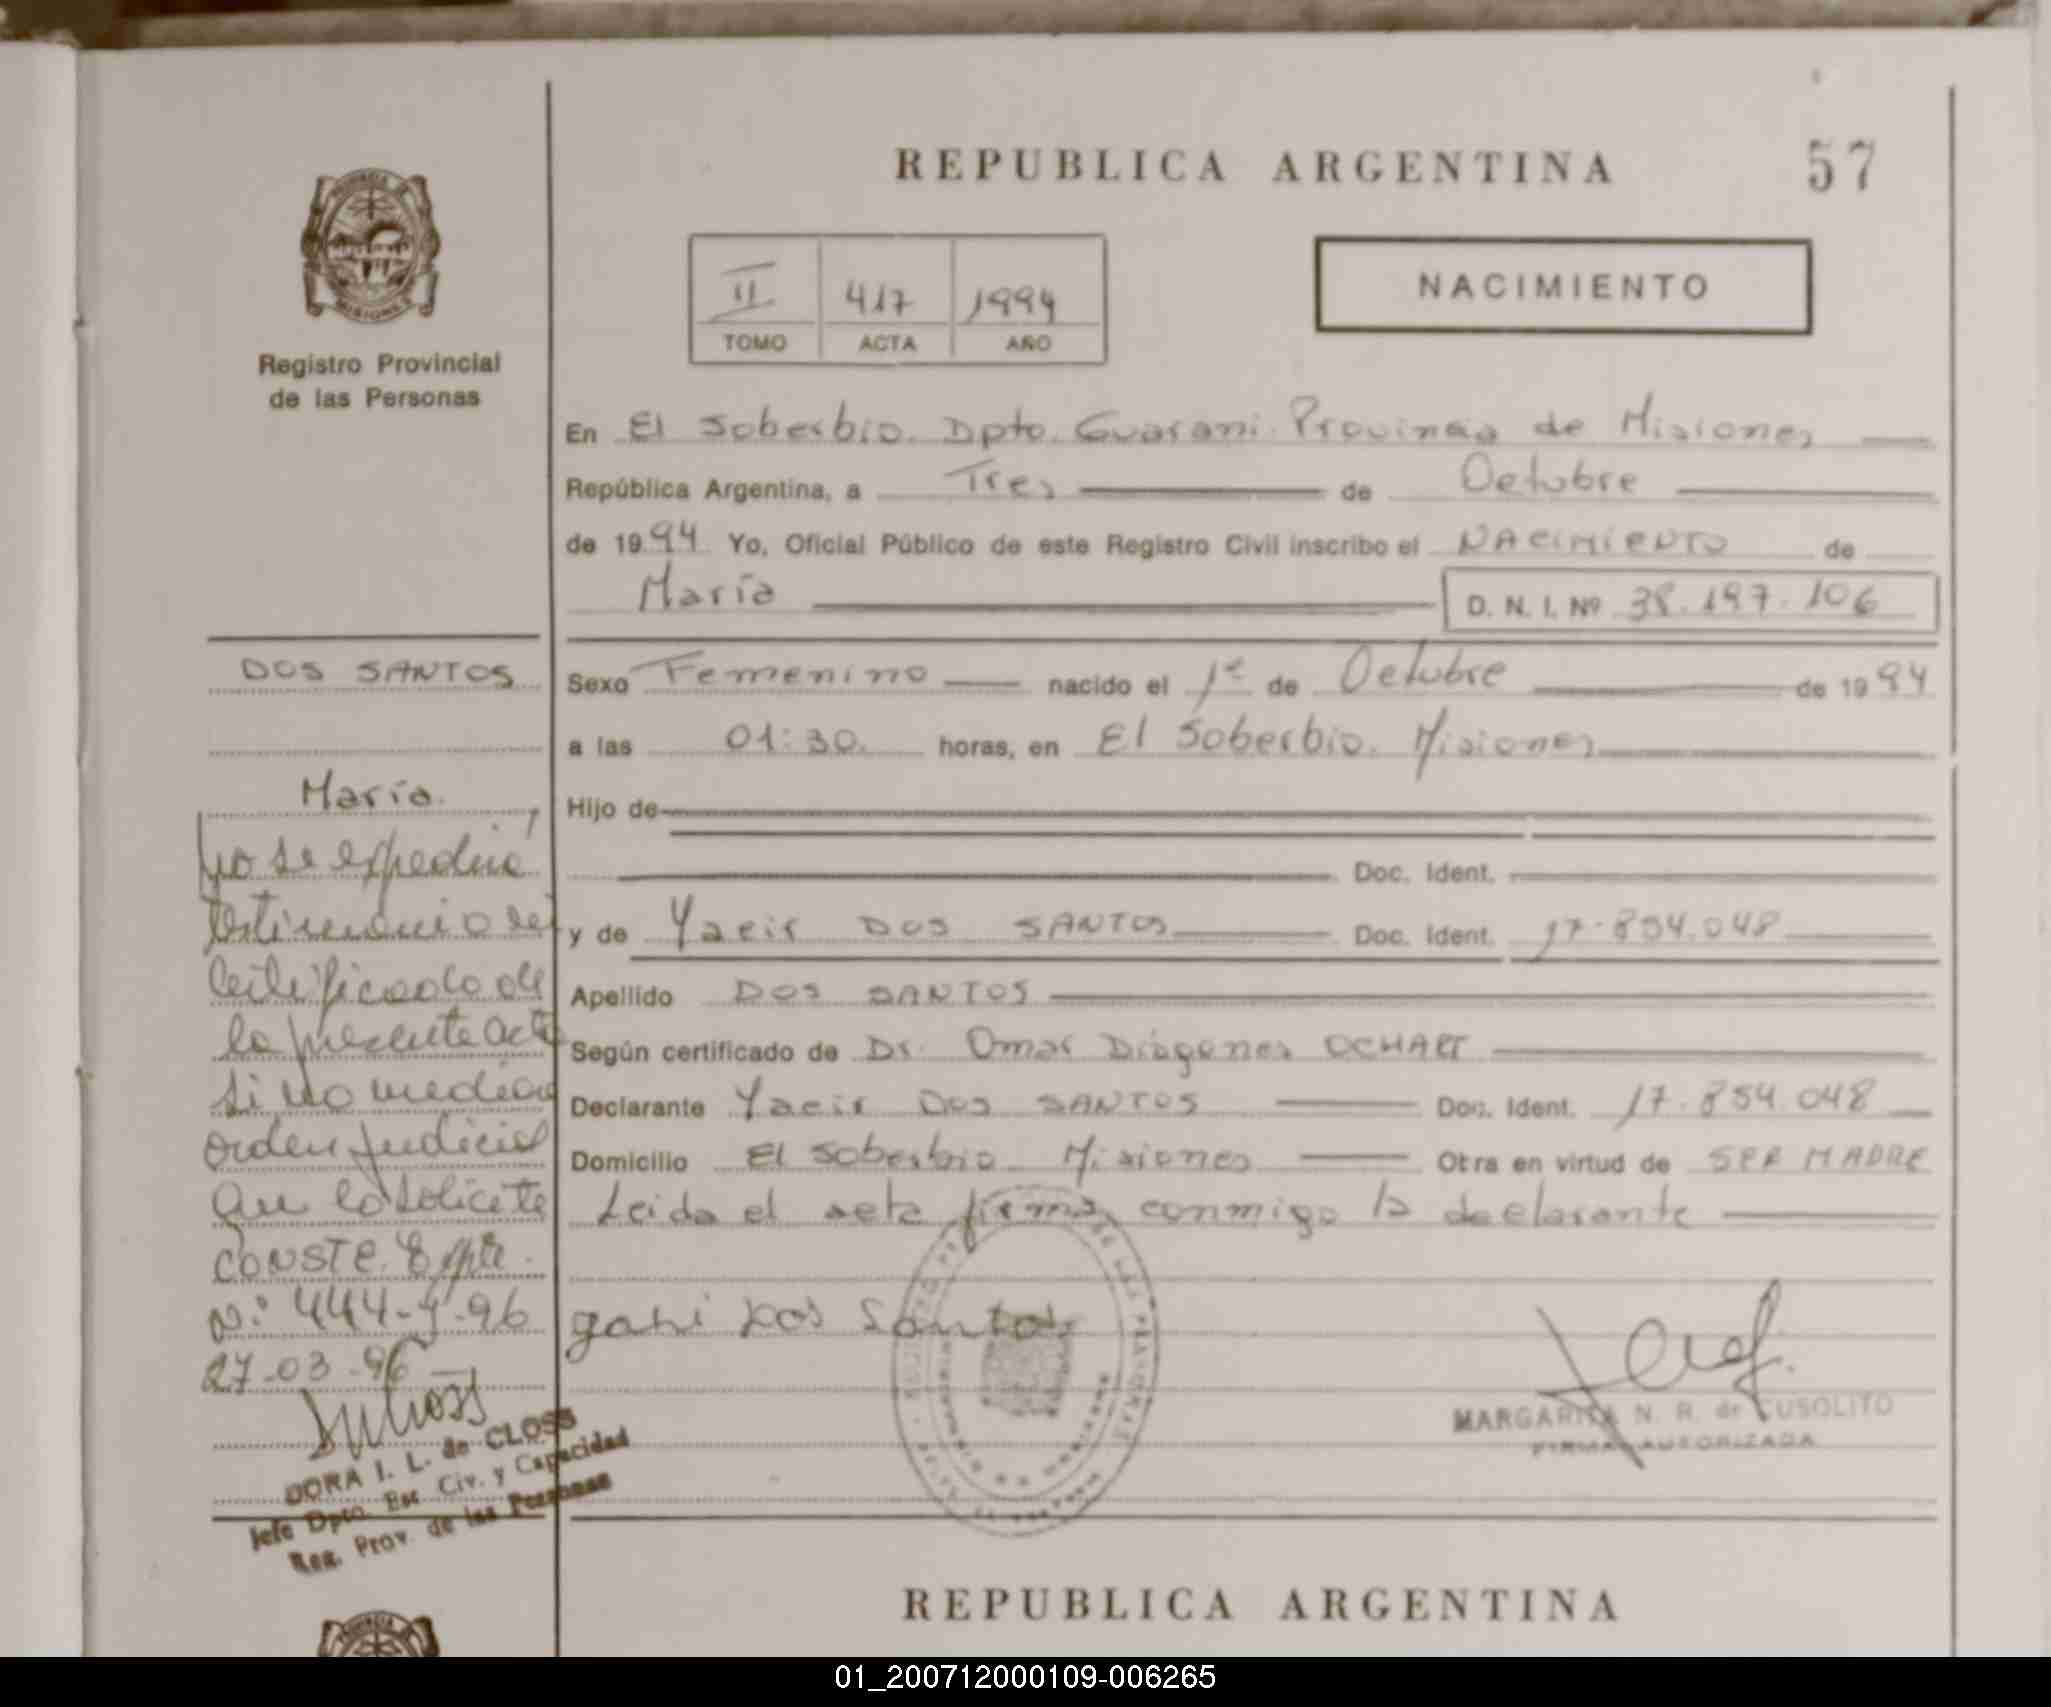 REPUBLICA ARGENTINA
57
NACIMIENTO
II 417 1994
TOMO ACTA AÑO
Registro Provincial
de las Personas
En El Soberbio. Dpto. Guarani. Provincia de Misiones
República Argentina, a Tres de Octubre
de 1994 Yo, Oficial Público de este Registro Civil inscribo el NACIMIENTO de
María D. N. I. Nº 38.197.106
Sexo Femenino nacido el 1º de Octubre de 1994
a las 01:30 horas, en El Soberbio. Misiones
Hijo de
Doc. Ident.
y de Yacir DOS SANTOS Doc. Ident. 17.854.048
Apellido DOS SANTOS
Según certificado de Dr. Omar Diógenes OCHART
Declarante Yacir DOS SANTOS Doc. Ident. 17.854.048
Domicilio El Soberbio Misiones Otra en virtud de SER MADRE
Leida el acta firma conmigo la declarante
Dos Santos
MARGARITA N. R. de CUSOLITO
FIRMA AUTORIZADA
DOS SANTOS
María.
No se expedirá
testimonio ni
certificado de
la presente acta
si no media
orden judicial
que lo solicite
CONSTE. Expte.
Nº 444-Y-96
27-03-96
DORA I. L. de CLOSS
Jefe Dpto. Est. Civ. y Capacidad
Reg. Prov. de las Personas
REPUBLICA ARGENTINA
01_200712000109-006265